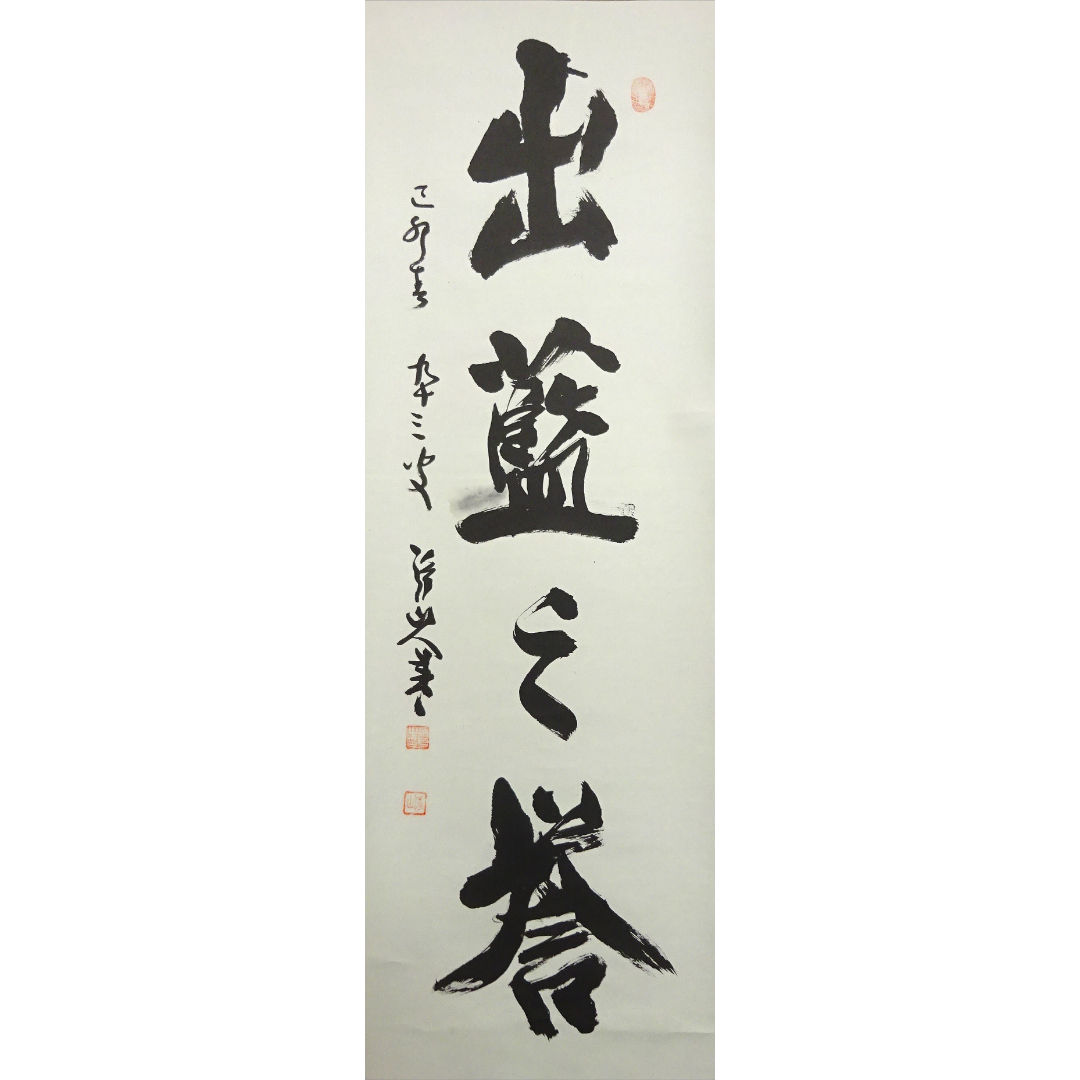 出藍之誉
己卯春 九十三叟